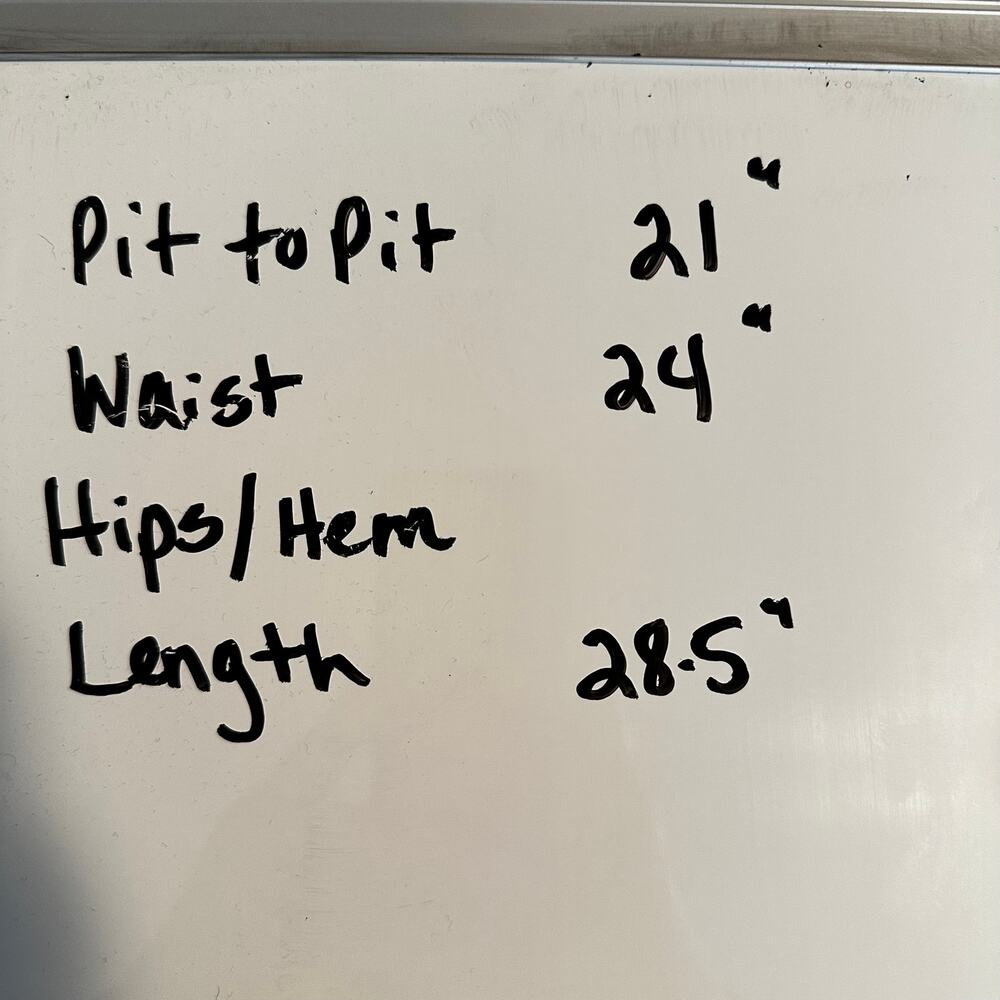 Pit to Pit 21"
Waist 24"
Hips/Hem
Length 28.5"